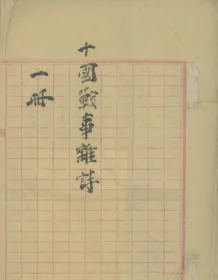 十國戰事雜詩
一冊